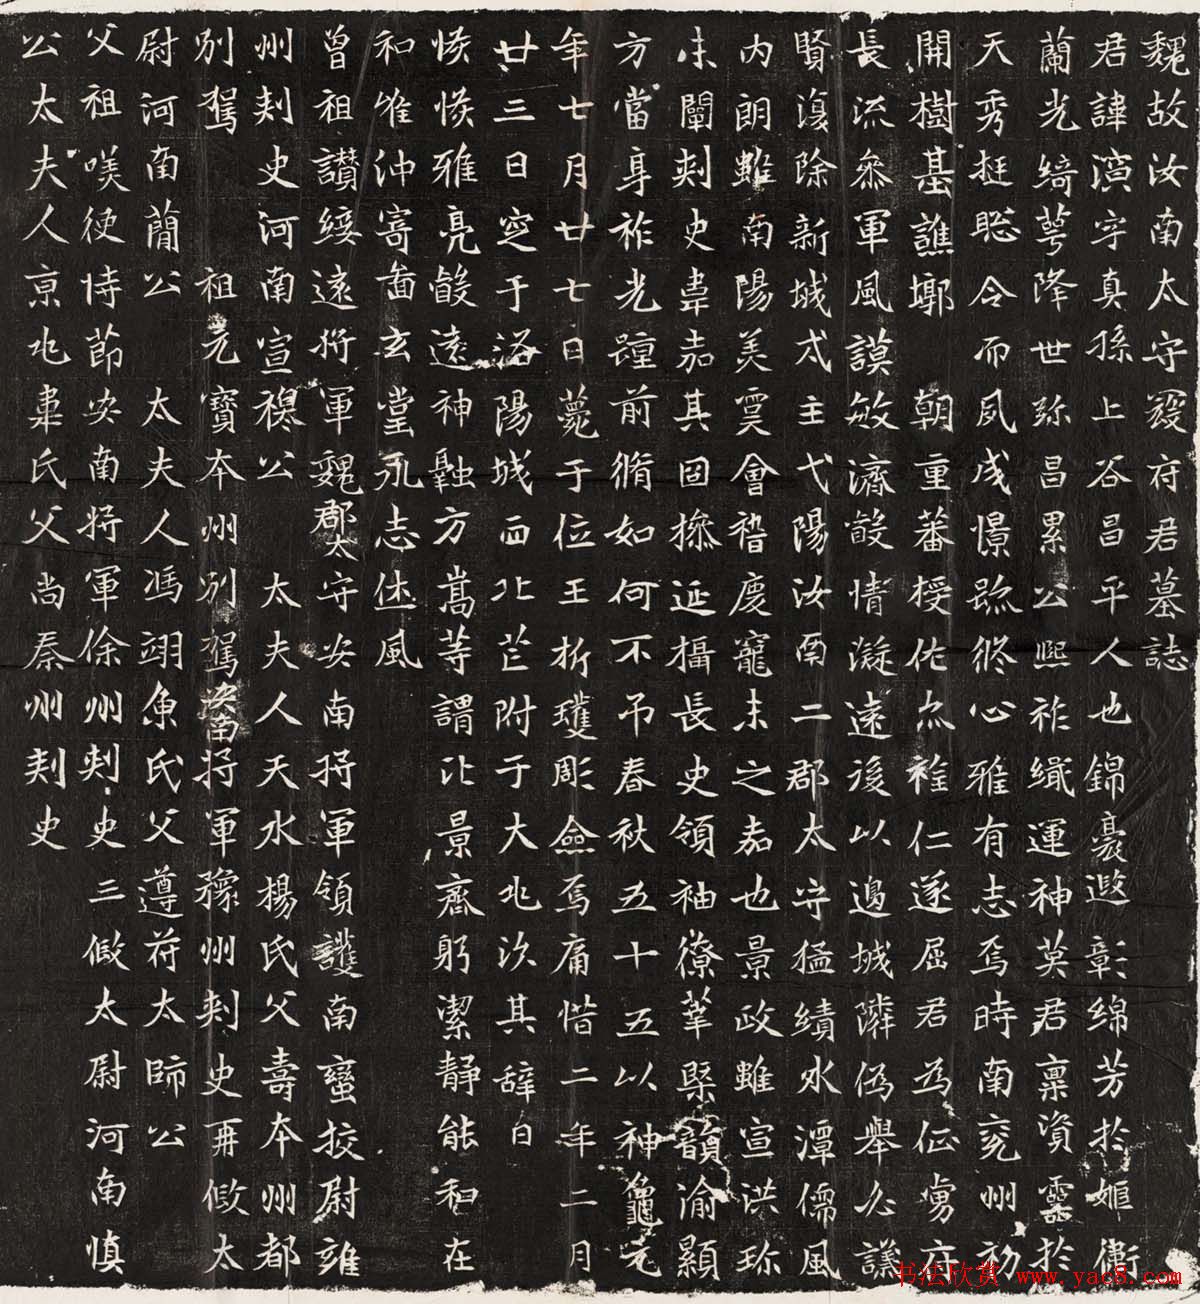 魏故汝南太守寇府君墓誌
君諱演字真孫上谷昌平人也錦裛遐彰綿芳於姬衛
蘭光綺萼降世弥昌累公熙祚織運神英君稟資靈於
天秀挺聡令而夙成憬跡終心雅有志焉時南兖州初
開樹基譙墎 朝重蕃授佐尒稚仁遂屈君為征虜府
長流叅軍風謨敏濟毃情凝遠後以邊城隣偽舉久議
賢復除新城弍主弋陽汝南二郡太守猛績水潭儒風
内朗雖南陽美寔會稽慶寵未之嘉也景政雖宣洪珎
未闡刾史韋嘉其固操延攝長史領袖僚菶槩韻渝顯
方當身祚光踵前脩如何不弔春秋五十五以神龜元
年七月廿七日薨于位王析彫僉焉痛惜二年二月
廿三日窆于洛陽城西北芒附于大兆次其辞曰
悠悠雅亮毃遠神融方嵩等謂比景齊躬潔静能和在
和惟沖寄啚玄堂永志風
曾祖讃綏遠將軍魏郡太守安南將軍領護南蠻挍尉雍
州刾史河南宣穆公 太夫人天水楊氏父壽本州都
別駕 祖元寳本州別駕安南將軍豫州刾史再假太
尉河南蕳公 太夫人馮翊魚氏父遵苻太師公
父祖嘆使持節安南將軍徐州刾史三假太尉河南慎
公太夫人京兆韋氏父尚秦州刾史
书法欣赏 www.yac8.com